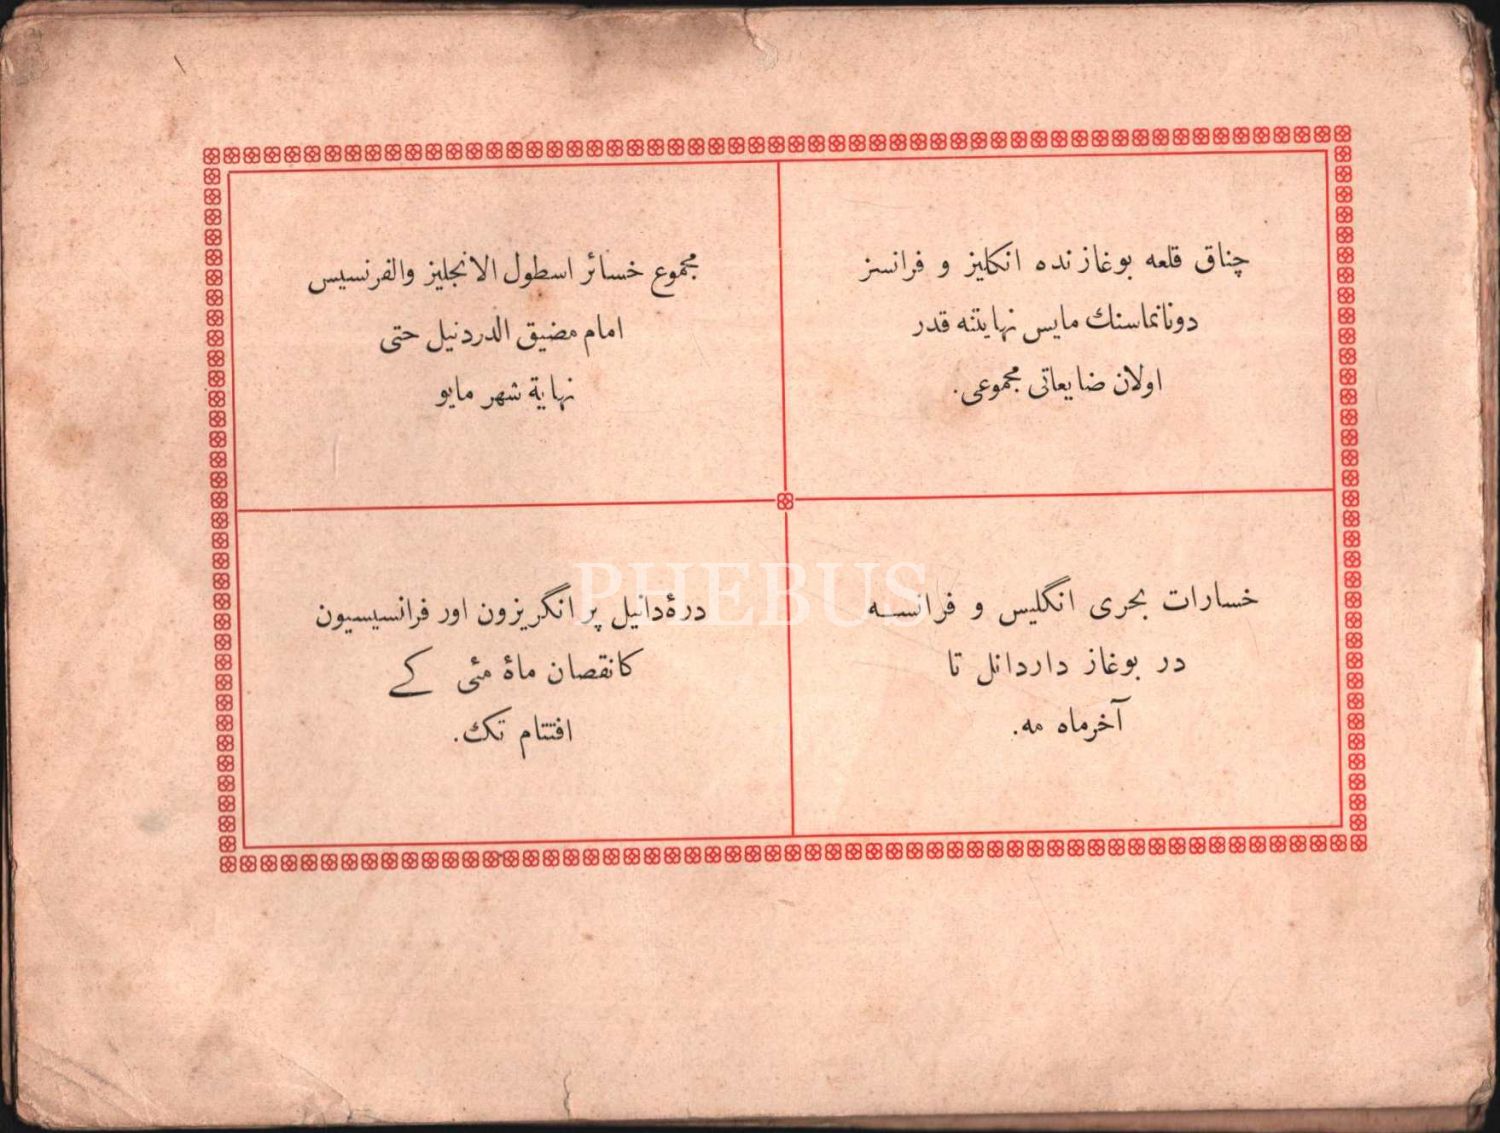 چناق قلعه بوغازنده انكليز و فرانسز
دونانماسنك مايس نهايتنه قدر
اولان ضايعاتى مجموعى.
مجموع خسائر اسطول الانجليز والفرنسيس
امام مضيق الدردنيل حتى
نهاية شهر مايو
خسارات بحرى انگليس و فرانسه
در بوغاز داردانل تا
آخرماه مه.
درۀدانيل پر انگريزون اور فرانسيسيون
كانقصان ماۀ مئى كے
افتتام تك.
PHEBUS